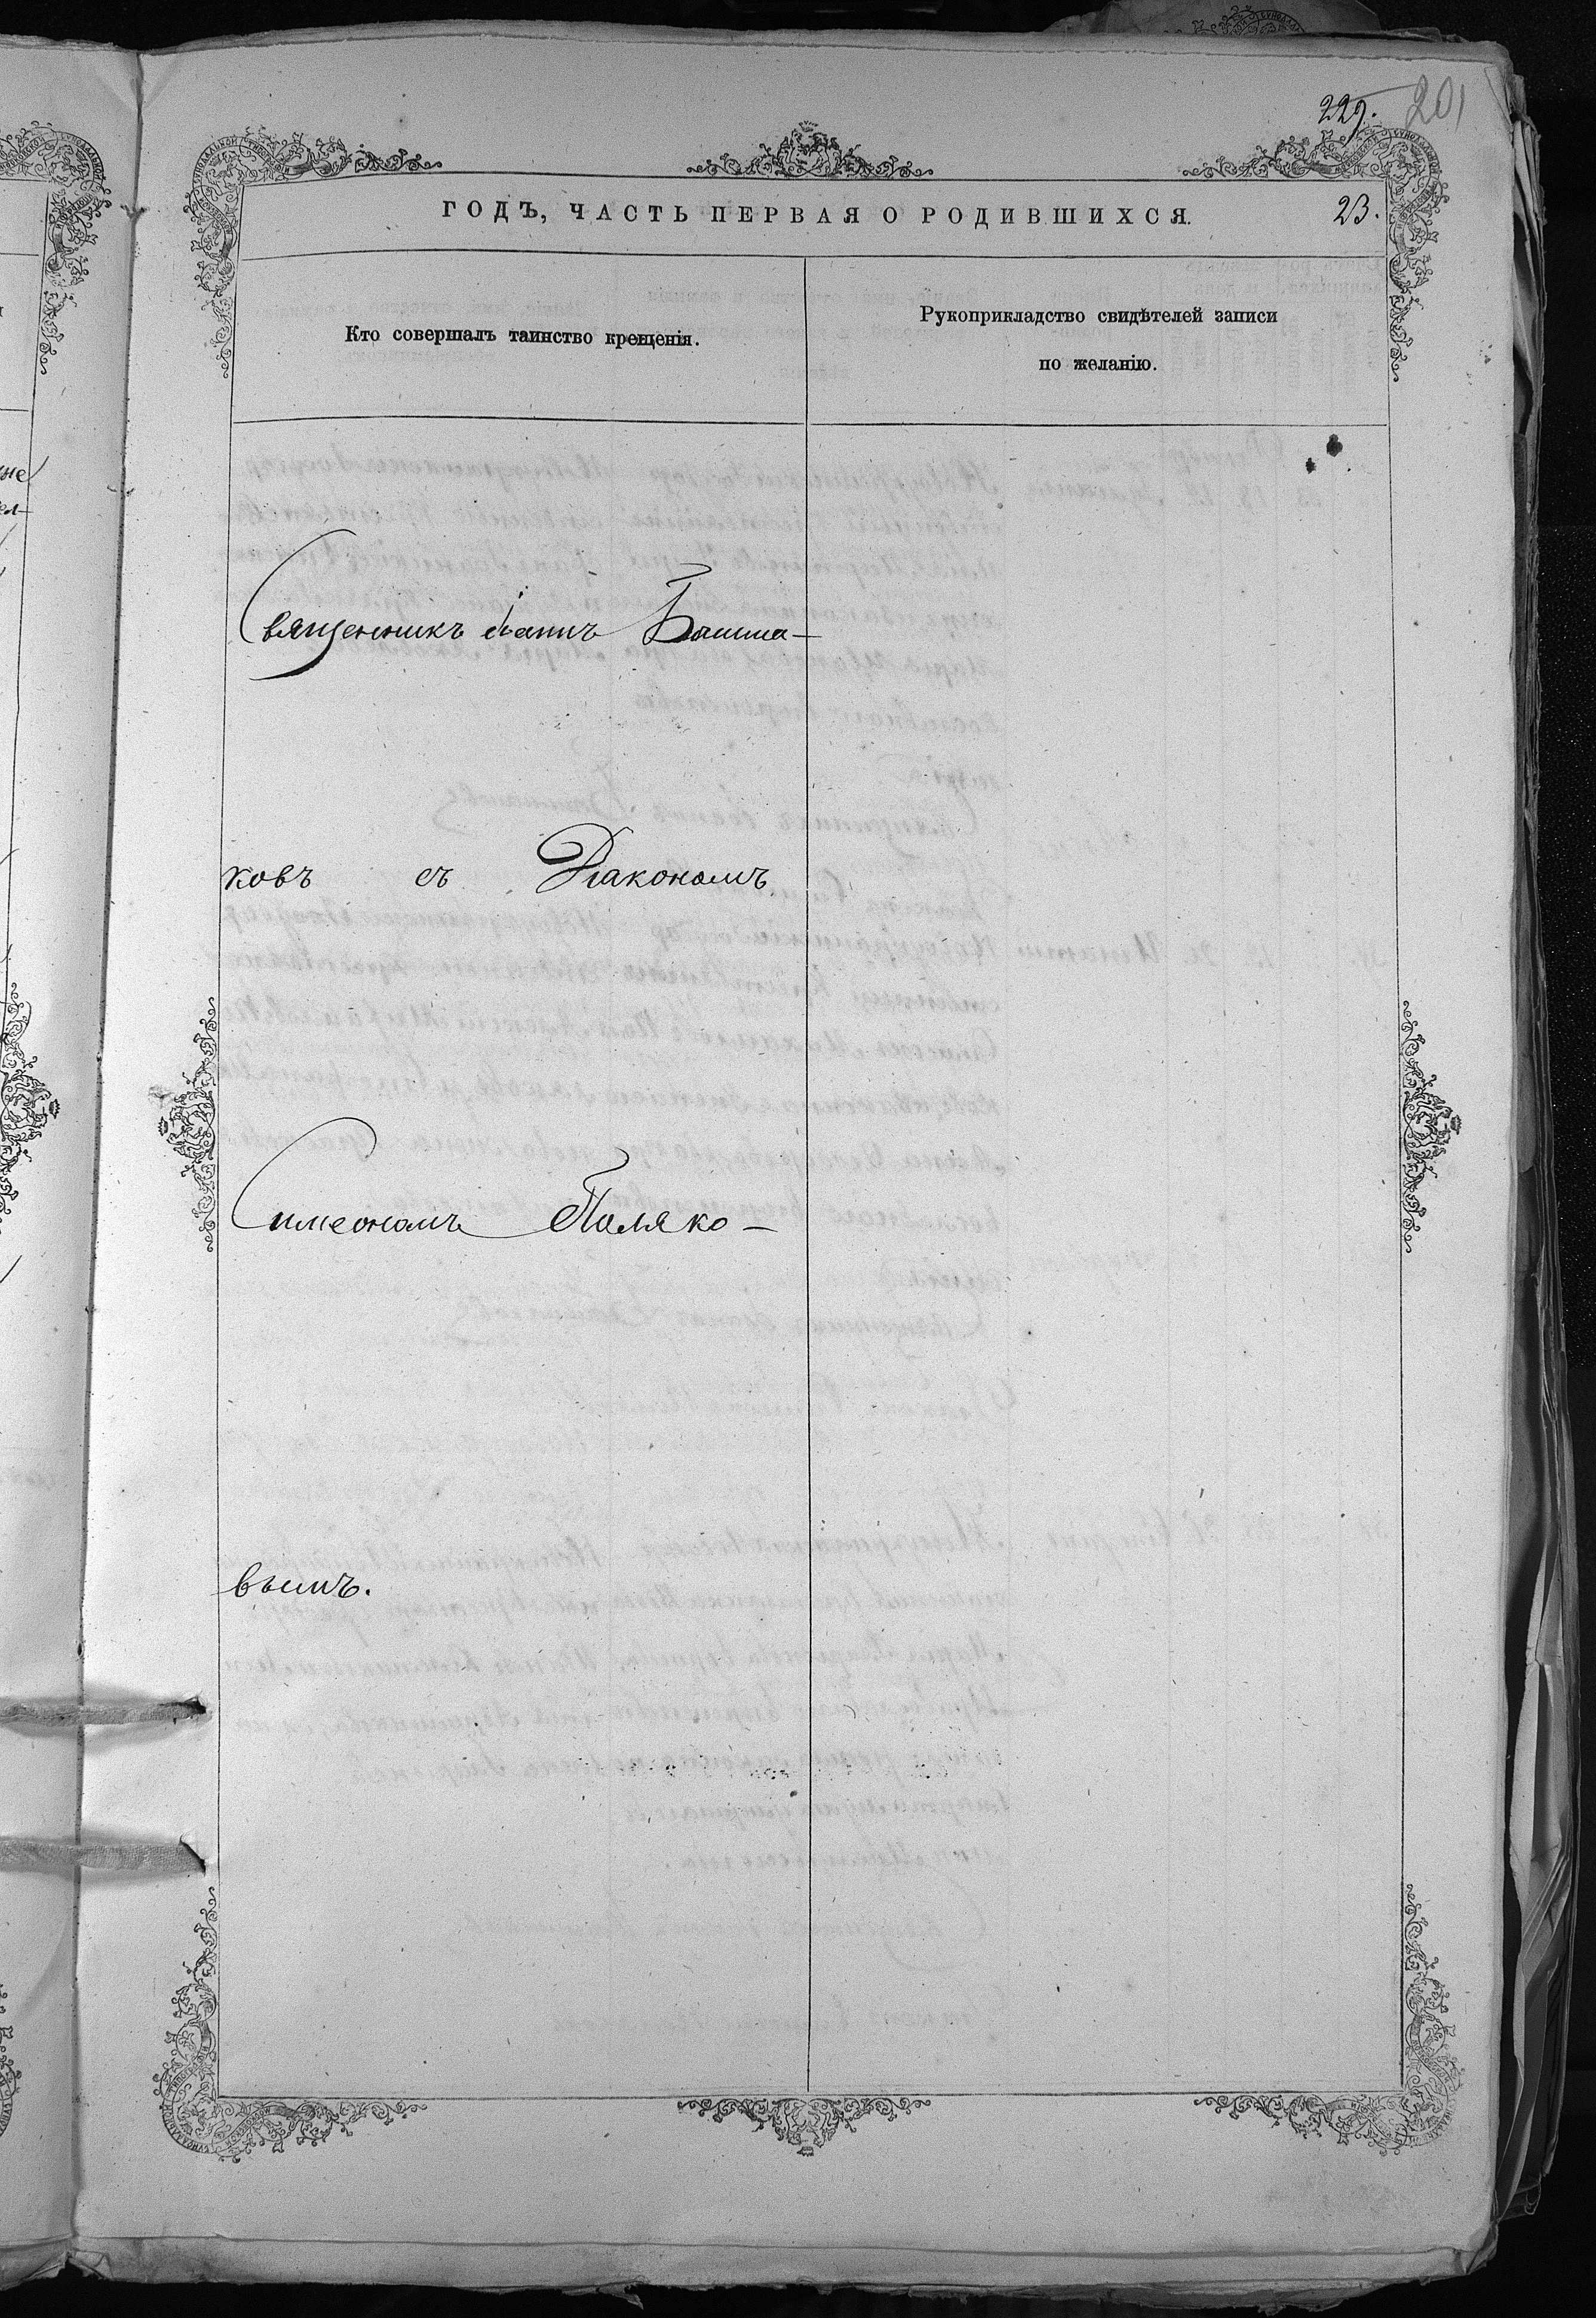 229. 201
ГОДЪ, ЧАСТЬ ПЕРВАЯ О РОДИВШИХСЯ. 23.
Кто совершалъ таинство крещенія.
Рукоприкладство свидѣтелей записи
по желанію.
Священникъ Іоаннъ Башма-
ковъ съ Діакономъ
Симеономъ Поляко-
вымъ.